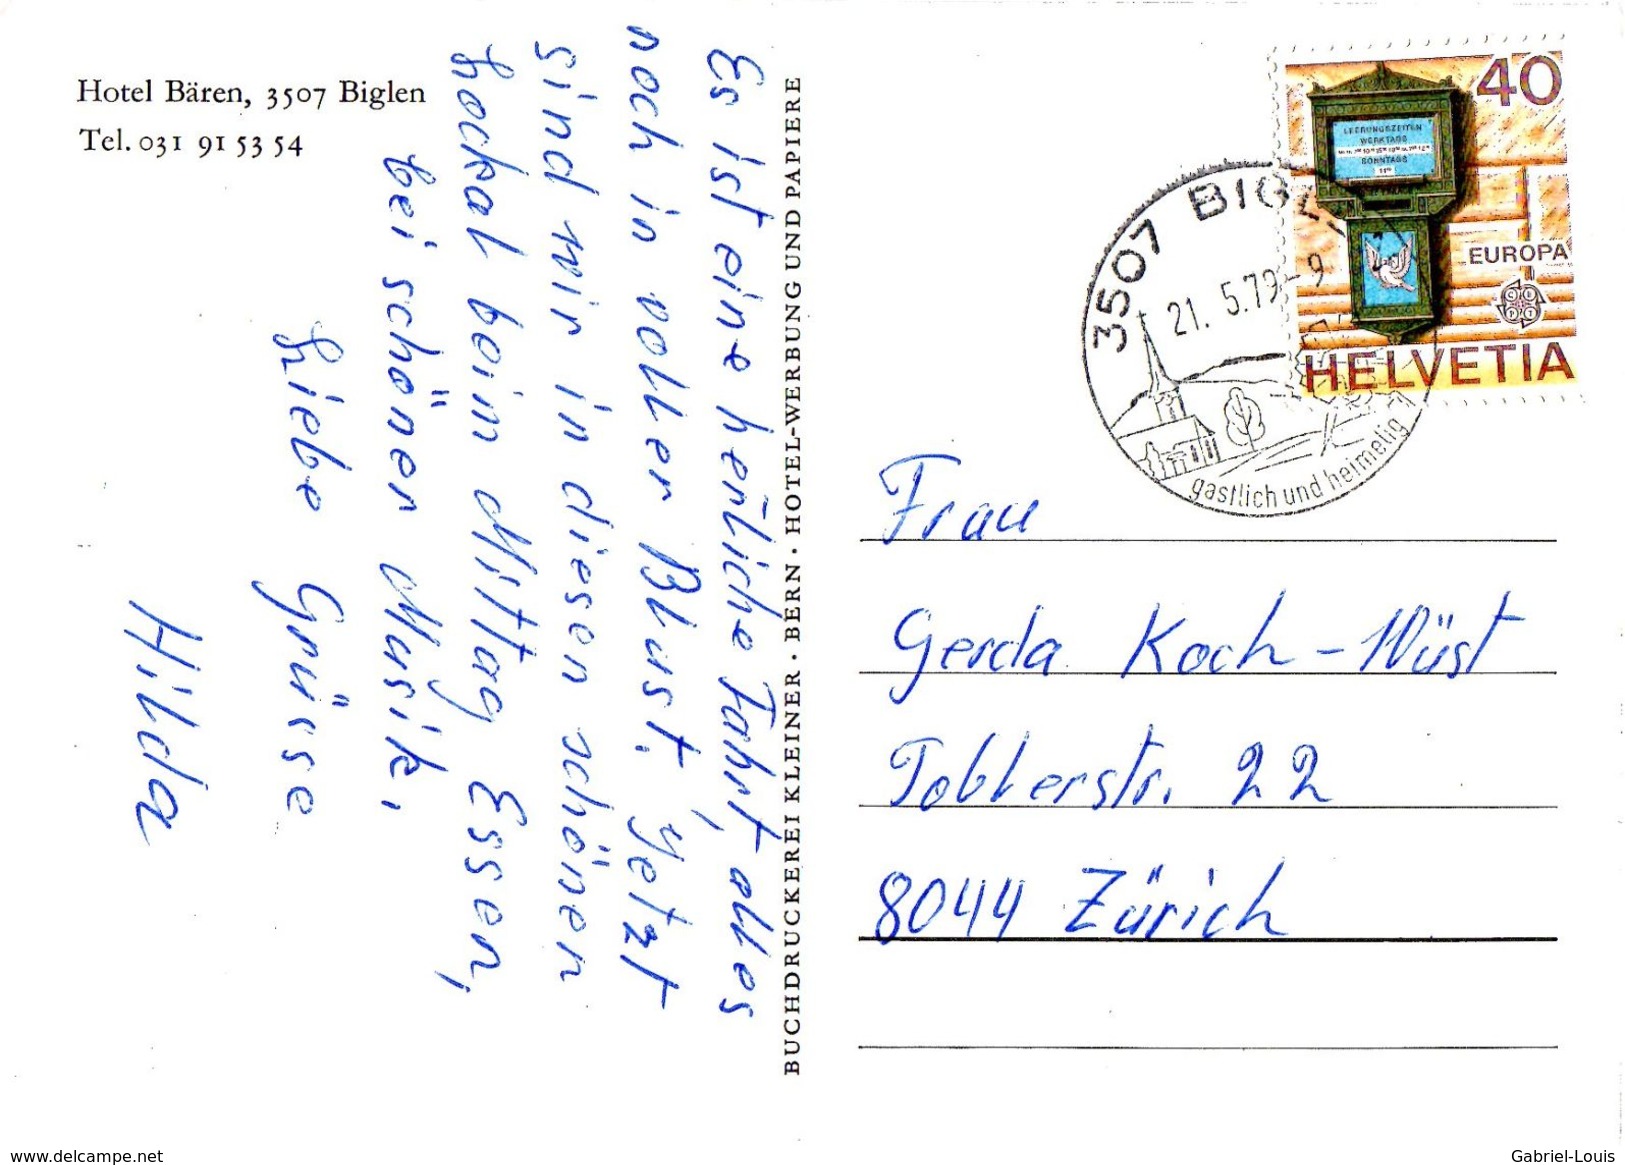 Hotel Bären, 3507 Biglen
Tel. 031 91 53 54
Es ist eine herrliche Fahrt, alles
noch in voller Blust. Jetzt
sind wir in diesen schönen
Lockal beim Mittag Essen,
bei schöner Musik.
Liebe Grüsse
Hilda
BUCHDRUCKEREI KLEINER · BERN · HOTEL-WERBUNG UND PAPIERE
40
LEERUNGSZEITEN
WERKTAGS
SONNTAGS
EUROPA
CEPT
HELVETIA
3507 BIGL
21. 5.79 - 9
gastlich und heimelig
Frau
Gerda Koch - Wüst
Toblerstr. 22
8044 Zürich
www.delcampe.net
Gabriel-Louis